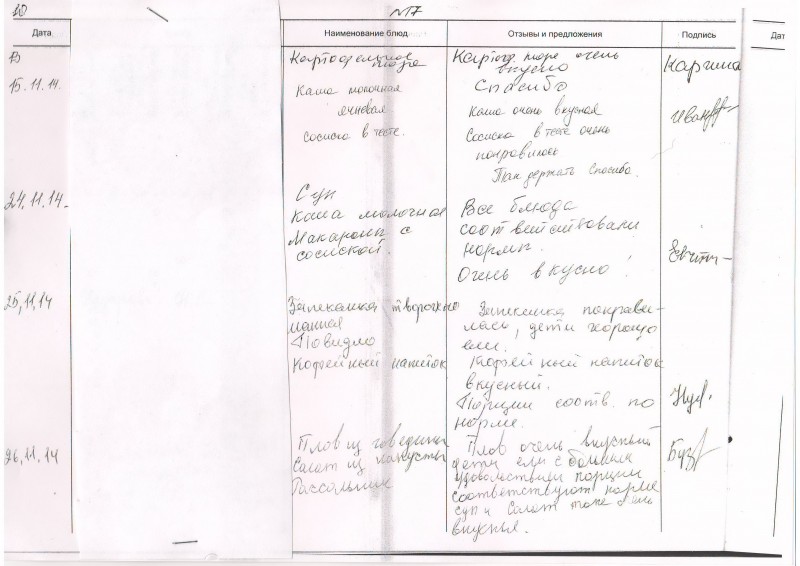 10 №17
Дата Наименование блюд Отзывы и предложения Подпись Дат
13 Картофельное Картоф. пюре очень
пюре вкусно Каргина
15.11.14. Спасибо
Каша молочная Каша очень вкусная
ячневая Сосиска в тесте очень
сосиска в тесте. понравилось
Так держать спасибо.
24.11.14. Суп
Каша молочная Все блюда
Макароны с соответствовали
сосиской. нормы.
Очень вкусно!
25.11.14 Запеканка творожно Запеканка понрави-
манная лась, дети хорошо
Повидло ели.
Кофейный напиток Кофейный напиток
вкусный.
Порции соотв. по
норме.
26.11.14 Плов из говядины Плов очень вкусный
Салат из капусты дети ели с большим
Рассольник удовольствием порции
соответствуют норме
суп и салат тоже очень
вкусные.